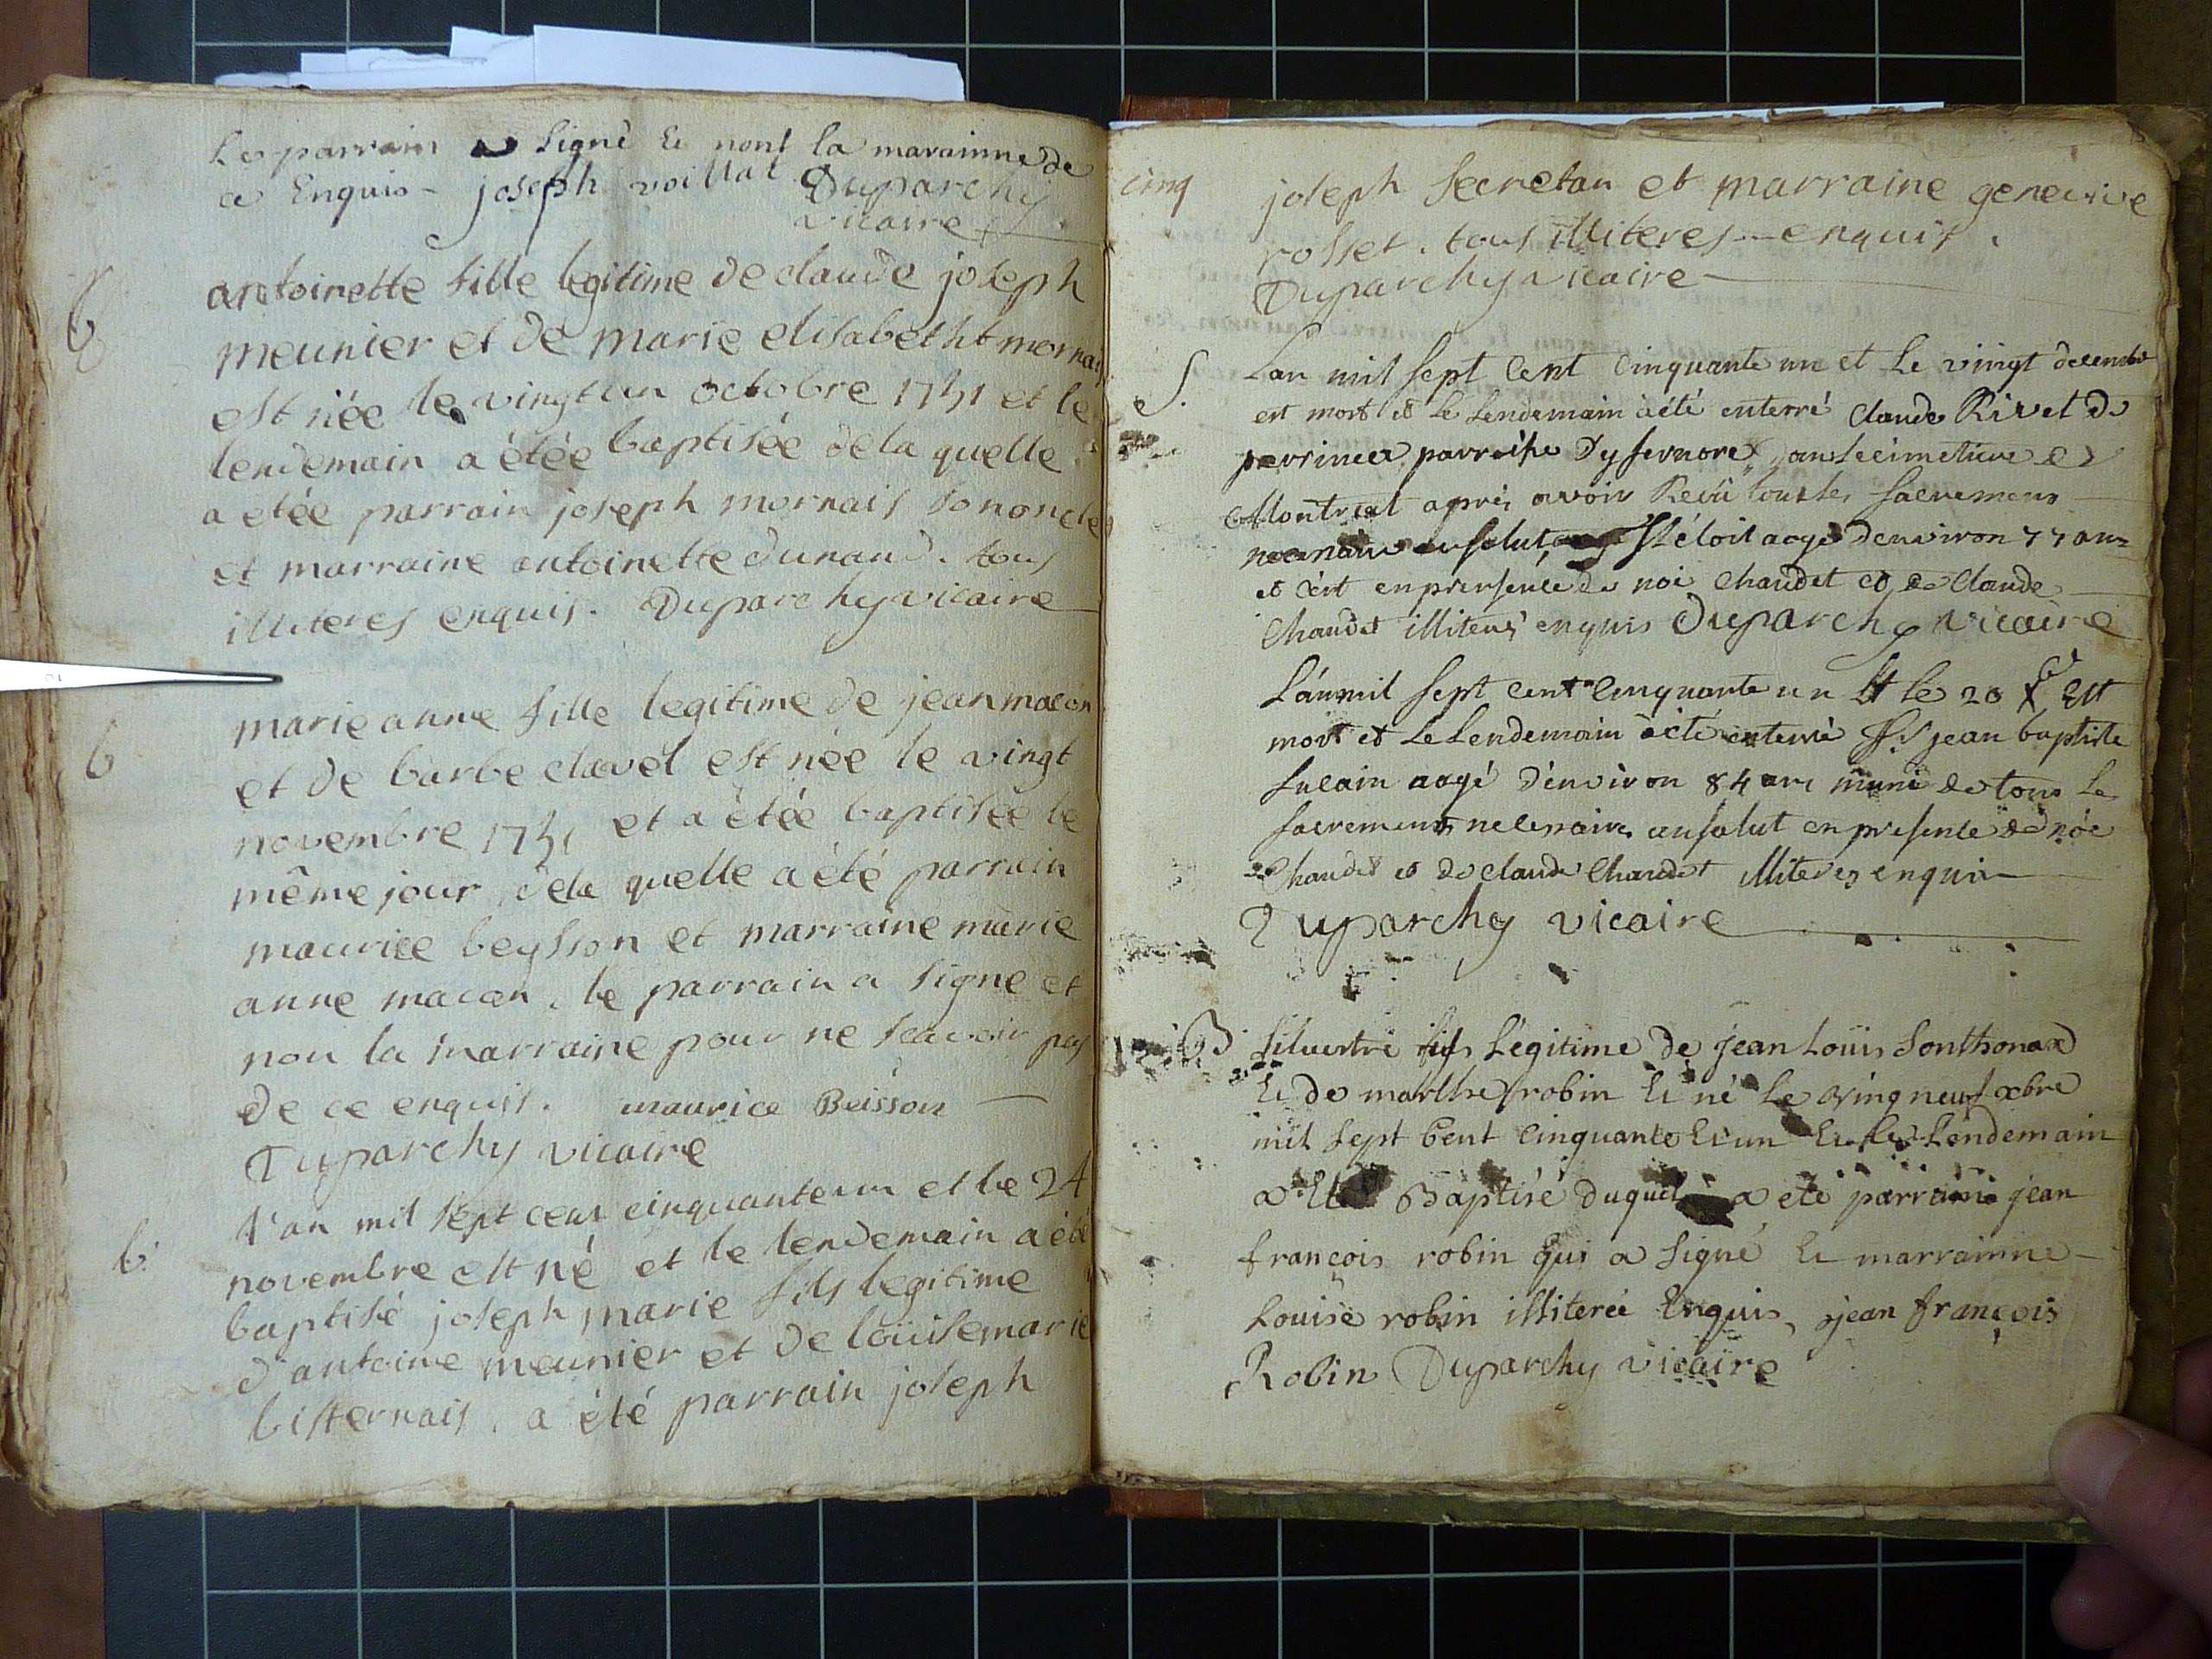 Le parrain a signé et nont la marainne de
ce Enquis - joseph voillat Duparchy
vicaire
b
antoinette fille legitime de claude joseph
meunier et de marie elisabetht mornais
est née le vingt un octobre 1751 et le
lendemain a étée baptisée de la quelle
a etée parrain joseph mornais son oncle
et marraine antoinette dunand. tous
illiteres enquis. Duparchy vicaire
b
marie anne fille legitime de jean macon
et de barbe clavel est née le vingt
novembre 1751 et a étée baptisée le
même jour, dela quelle a été parrain
maurice beysson et marraine marie
anne macon. le parrain a signe et
non la marraine pour ne scavoir pas
de ce enquis. maurice Beisson
Duparchy vicaire
b.
L'an mil sept cent cinquante un et le 24
novembre est né et le lendemain a été
baptisé joseph marie fils legitime
d'antoine meunier et de loüise marie
bisternais. a été parrain joseph
cinq
joseph secretan et marraine genevive
rosset. tous illiteres enquis.
Duparchy vicaire
S.
Lan mil sept Cent Cinquante un et le vingt decembre
est mort et le Lendemain à été enterré Claude Rivet de
perrineer parroisse Dysernore au cimetiere de
Montreal aprés avoir Recü tous les sacremens
necenaire au salut Il étoit aagé denviron 77 ans
et c'est en presence de noé Chaudet et de Claude
Chaudet illiteres enquis Duparchy vicaire
L'án mil sept cent Cinquante un Et le 20 Est
mort et Le Lendemain à été enterré jean baptiste
aagé d'environ 84 ans muni de tous les
sacremens necenaires au salut en presence de nóé
Chaudet et de claude Chaudet illiteres enquis
Duparchy vicaire
B
silvestre fils Légitime de jean Loüis Sonthonax
Et de marthe robin Et né Le ving neuf xbre
mil sept Cent Cinquante Et un Et Le Lendemain
a Eté Baptisé duquel a eté parrain jean
françois robin qui a signé Et marrainne
Louise robin illiterée Enquis, jean françois
Robin Duparchy vicaire